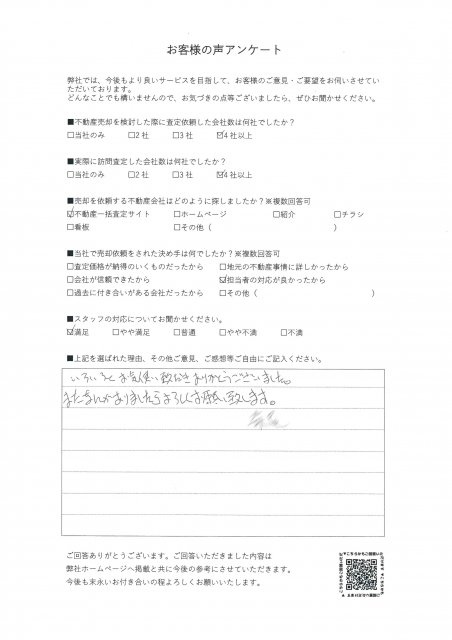 お客様の声アンケート
弊社では、今後もより良いサービスを目指して、お客様のご意見・ご要望をお伺いさせてい
ただいております。
どんなことでも構いませんので、お気づきの点等ございましたら、ぜひお聞かせください。
■不動産売却を検討した際に査定依頼した会社数は何社でしたか?
□当社のみ □2社 □3社 ☑4社以上
■実際に訪問査定した会社数は何社でしたか?
□当社のみ □2社 □3社 ☑4社以上
■売却を依頼する不動産会社はどのように探しましたか?※複数回答可
☑不動産一括査定サイト □ホームページ □紹介 □チラシ
□看板 □その他( )
■当社で売却依頼をされた決め手は何でしたか?※複数回答可
□査定価格が納得のいくものだったから □地元の不動産事情に詳しかったから
□会社が信頼できたから ☑担当者の対応が良かったから
□過去に付き合いがある会社だったから □その他( )
■スタッフの対応についてお聞かせください。
☑満足 □やや満足 □普通 □やや不満 □不満
■上記を選ばれた理由、その他ご意見、ご感想等ご自由にご記入ください。
いろいろとお気使い頂きありがとうございました。
またなんかありましたらよろしくお願い致します。
ご回答ありがとうございます。ご回答いただきました内容は
弊社ホームページへ掲載と共に今後の参考にさせていただきます。
今後も末永いお付き合いの程よろしくお願いいたします。